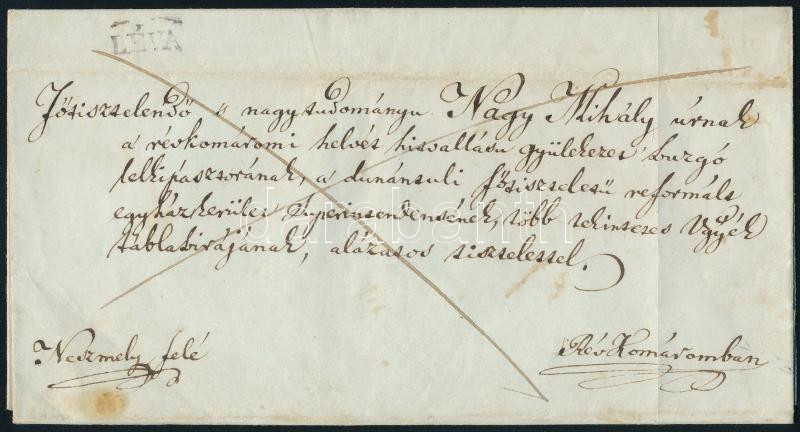 LÉVA
Főtisztelendő " nagytudományu Nagy Mihály úrnak
a révkomáromi helvét hitvallásu gyülekezet buzgó
lelkipásztorának, a dunántuli főtiszteletű reformált
egyházkerület Superintendensének, több tekintetes Vgyék
táblabirájának, alázatos tisztelettel.
Neszmely felé
RévKomáromban
darabanth